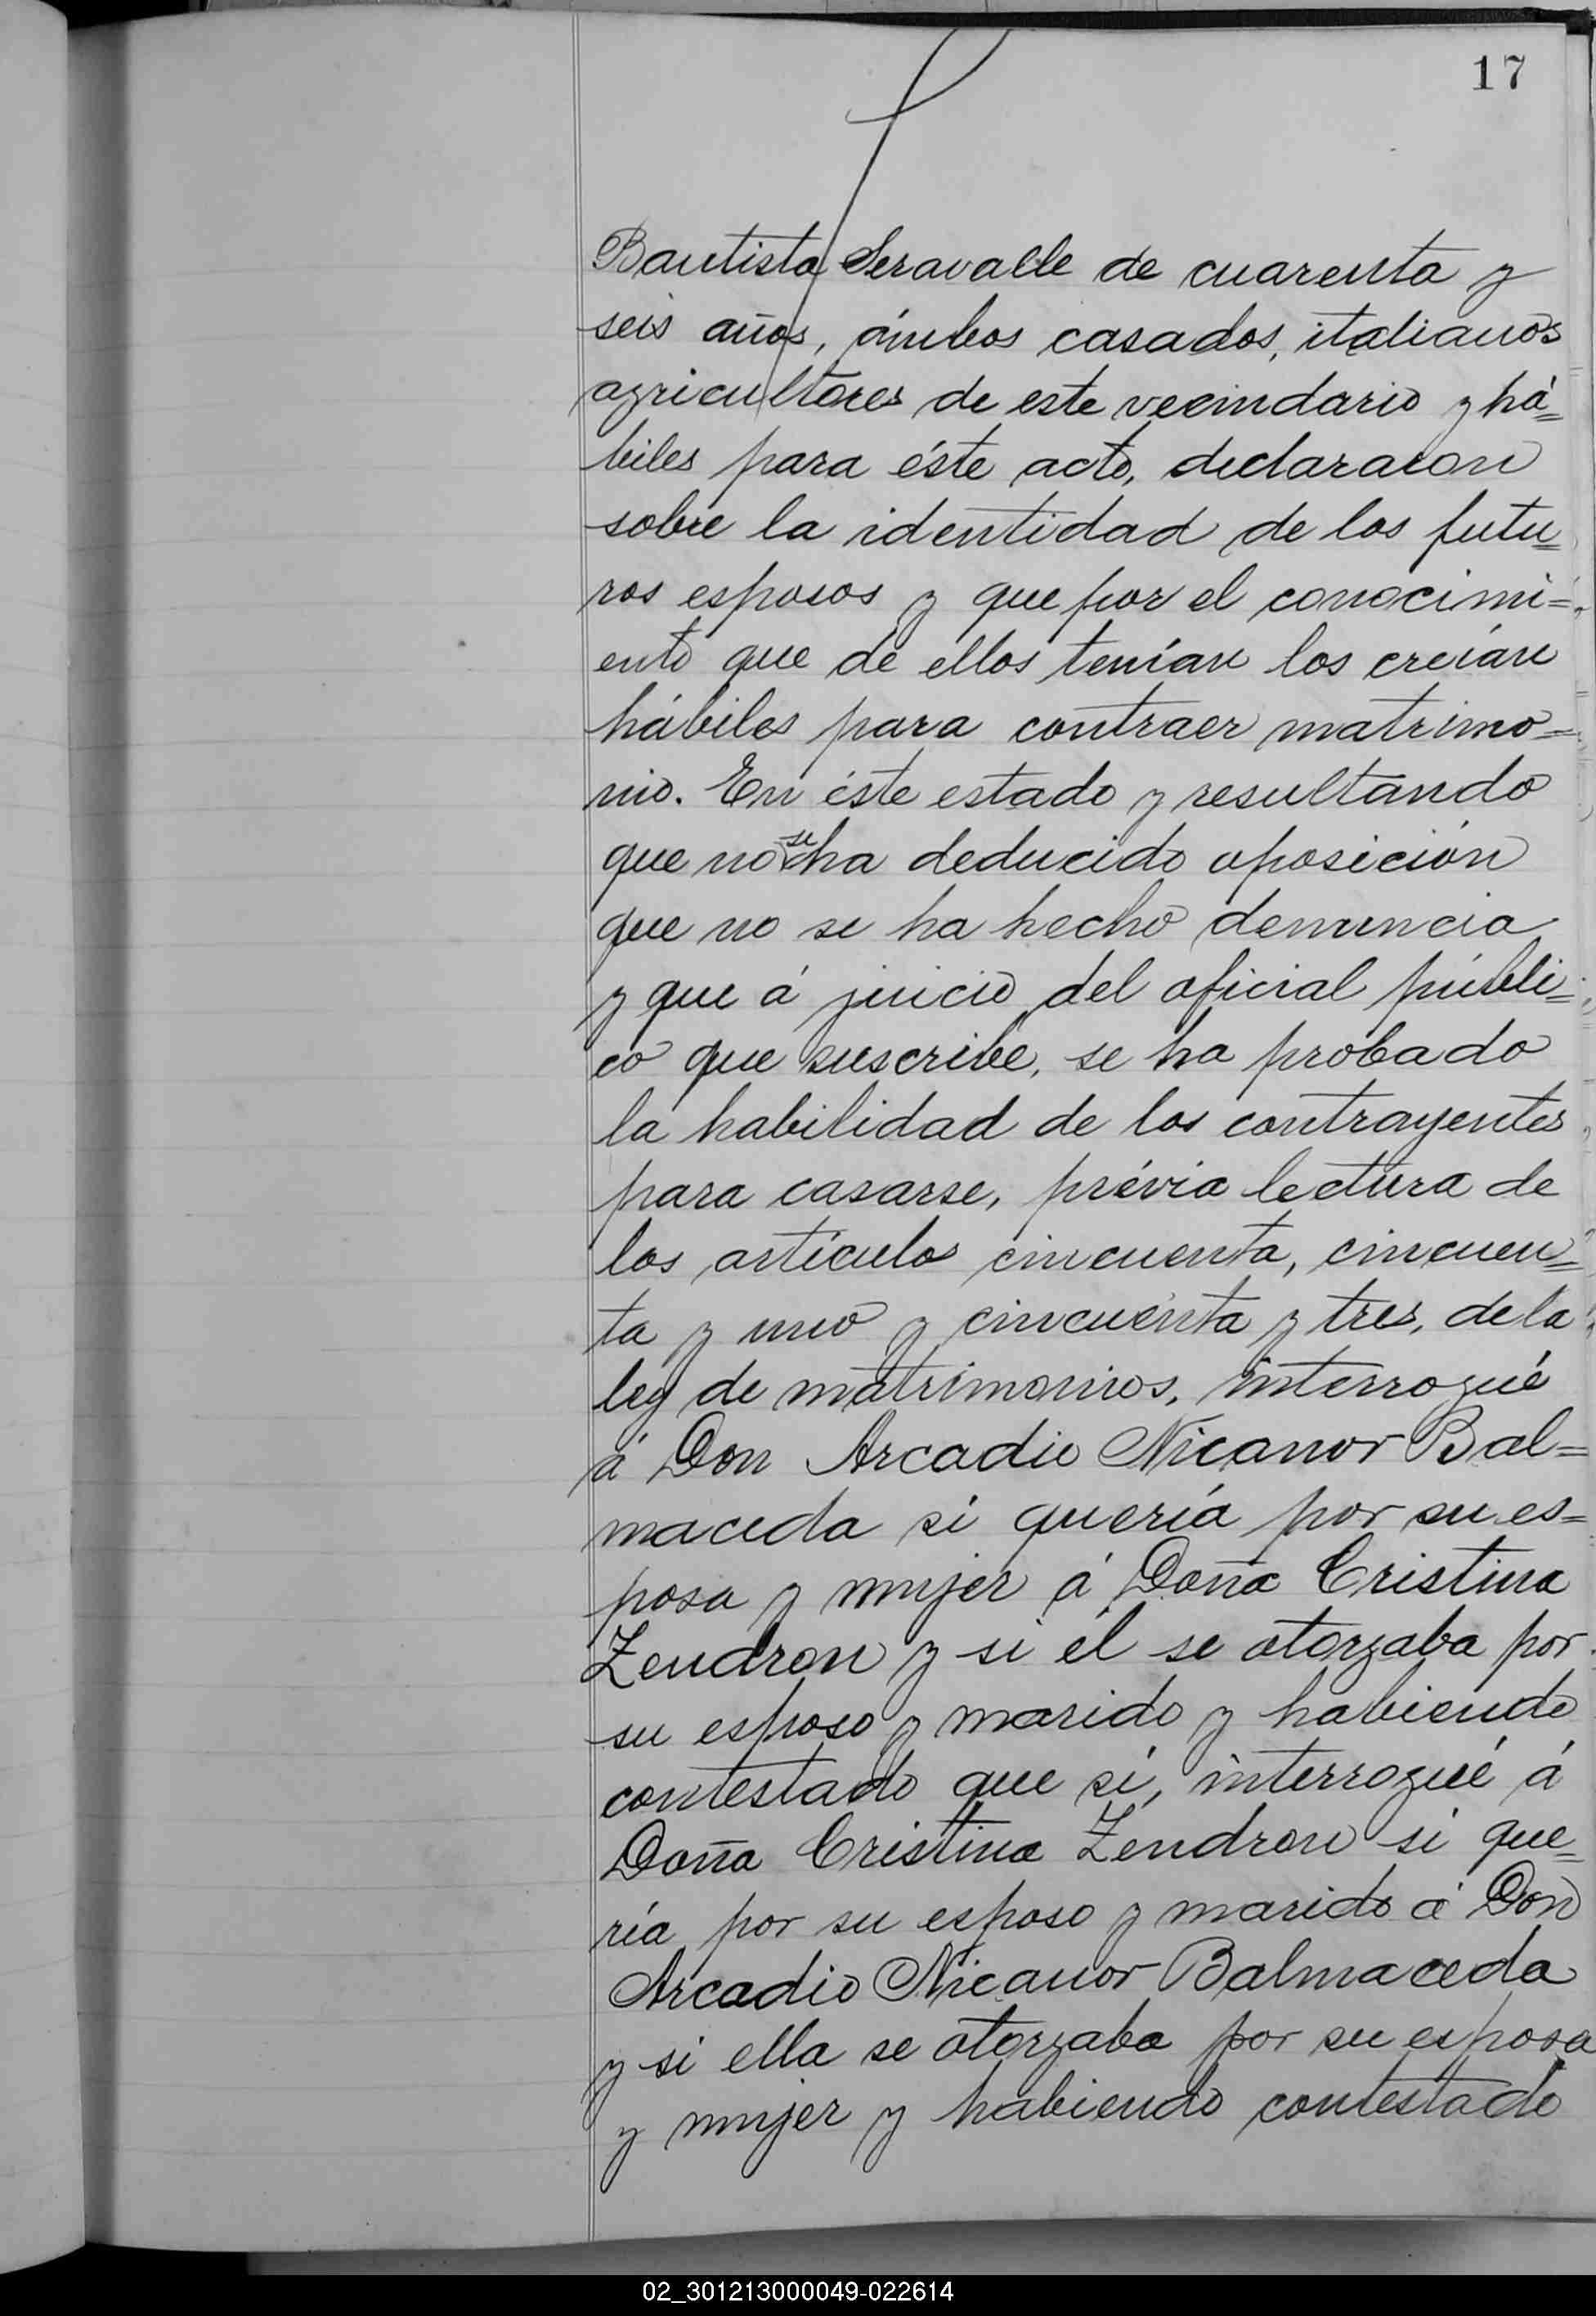 17
Bautista Seravalle de cuarenta y
seis años, ámbos casados, italianos
agricultores de este vecindario y há=
biles para éste acto, declararon
sobre la identidad de los futu=
ros esposos y que por el conocimi=
ento que de ellos tenían los creían
hábiles para contraer matrimo=
nio. En éste estado y resultando
que no se ha deducido oposición
que no se ha hecho denuncia
y que á juicio del oficial públi=
co que suscribe, se ha probado
la habilidad de los contrayentes
para casarse, prévia lectura de
los artículos cincuenta, cincuen=
ta y uno y cincuenta y tres, de la
ley de matrimonios, interrogué
á Don Arcadio Nicanor Bal=
maceda si quería por su es=
posa y mujer á Doña Cristina
Zendron y si él se otorgaba por
su esposo y marido y habiendo
contestado que sí, interrogué á
Doña Cristina Zendron si que=
ría por su esposo y marido á Don
Arcadio Nicanor Balmaceda
y si ella se otorgaba por su esposa
y mujer y habiendo contestado
02_301213000049-022614